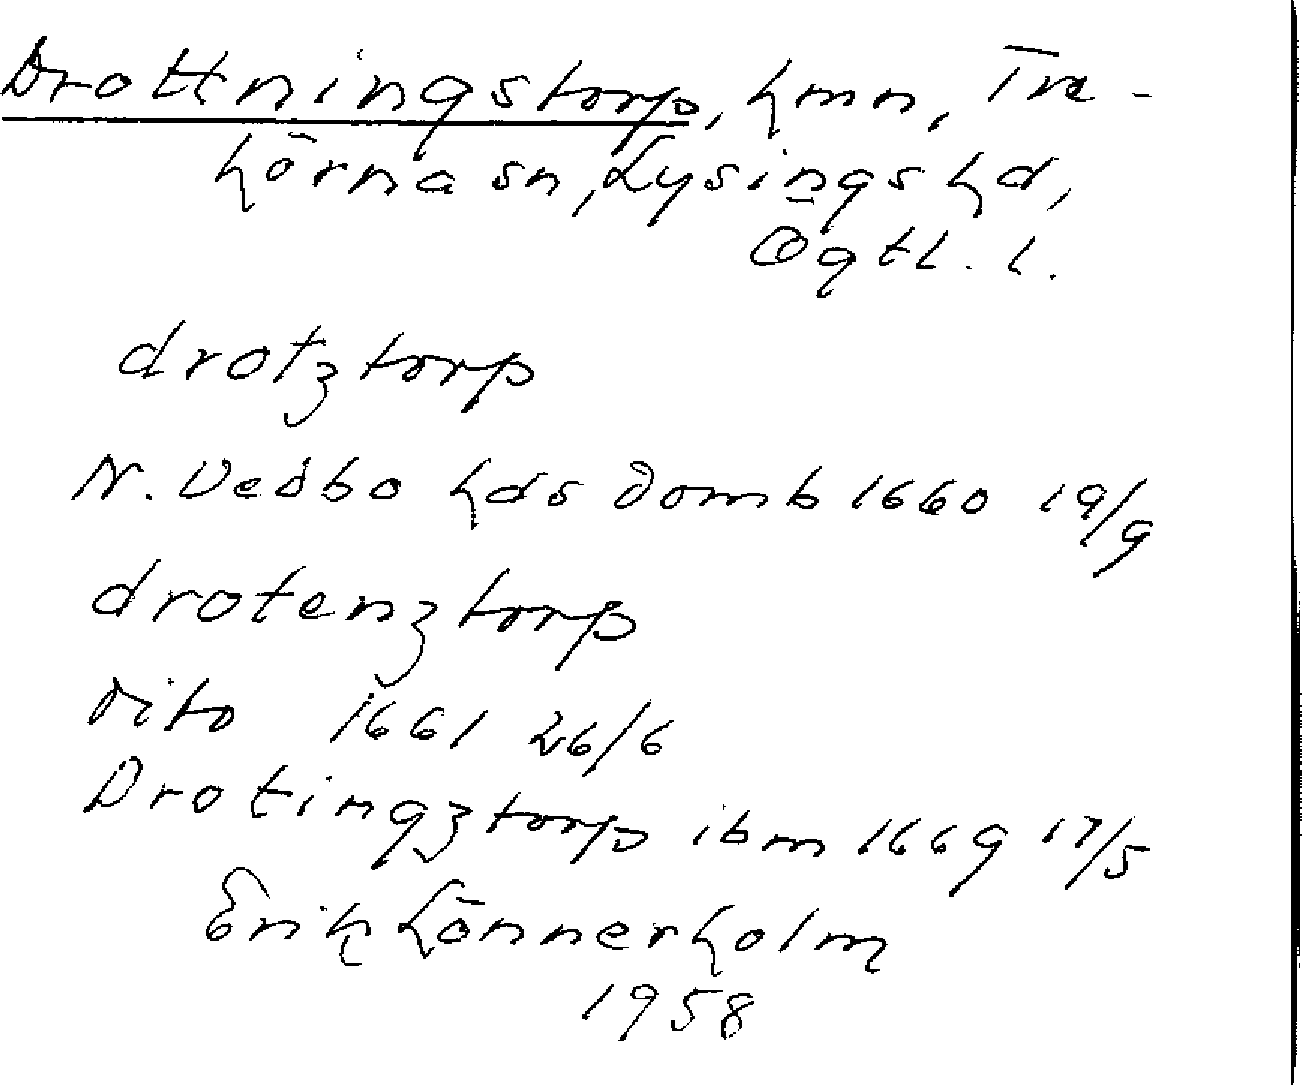 Drottningstorp, hmn, Tre-
hörna sn, Lysings hd,
Ögtl. l.
drotztorp
N. Vedbo hds domb 1660 19/9
drotenztorp
dito 1661 26/6
Drotingztorp ibm 1669 17/5
Erik Lönnerholm
1958